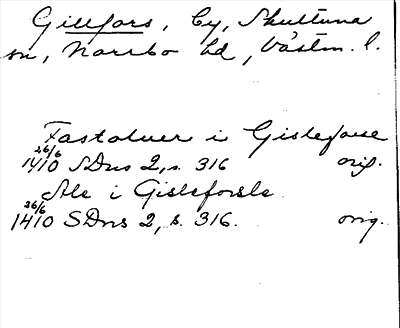 Gillfors, by, Skultuna
sn, Norrbo hd, Västm. l.
Fastaluer i Gisleforse
26/6
1410 SDns 2, s. 316 orig.
Ale i Gisleforsle
26/6
1410 SDns 2, s. 316. orig.